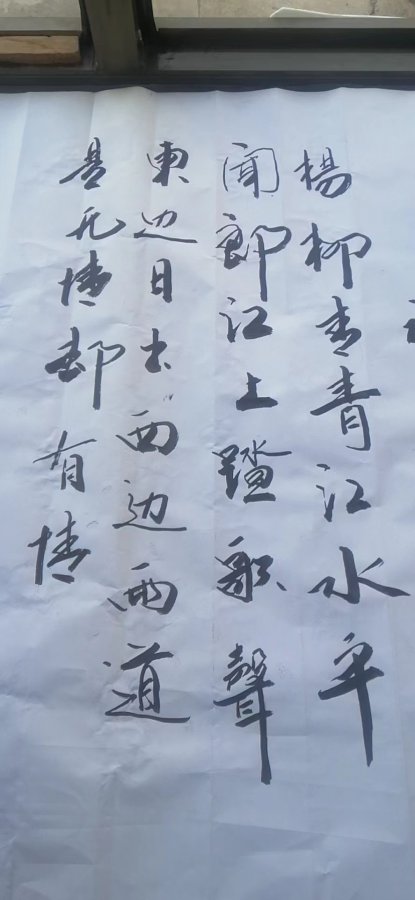 楊柳青青江水平
聞郎江上踏歌聲
東边日出西边雨道
是无情却有情